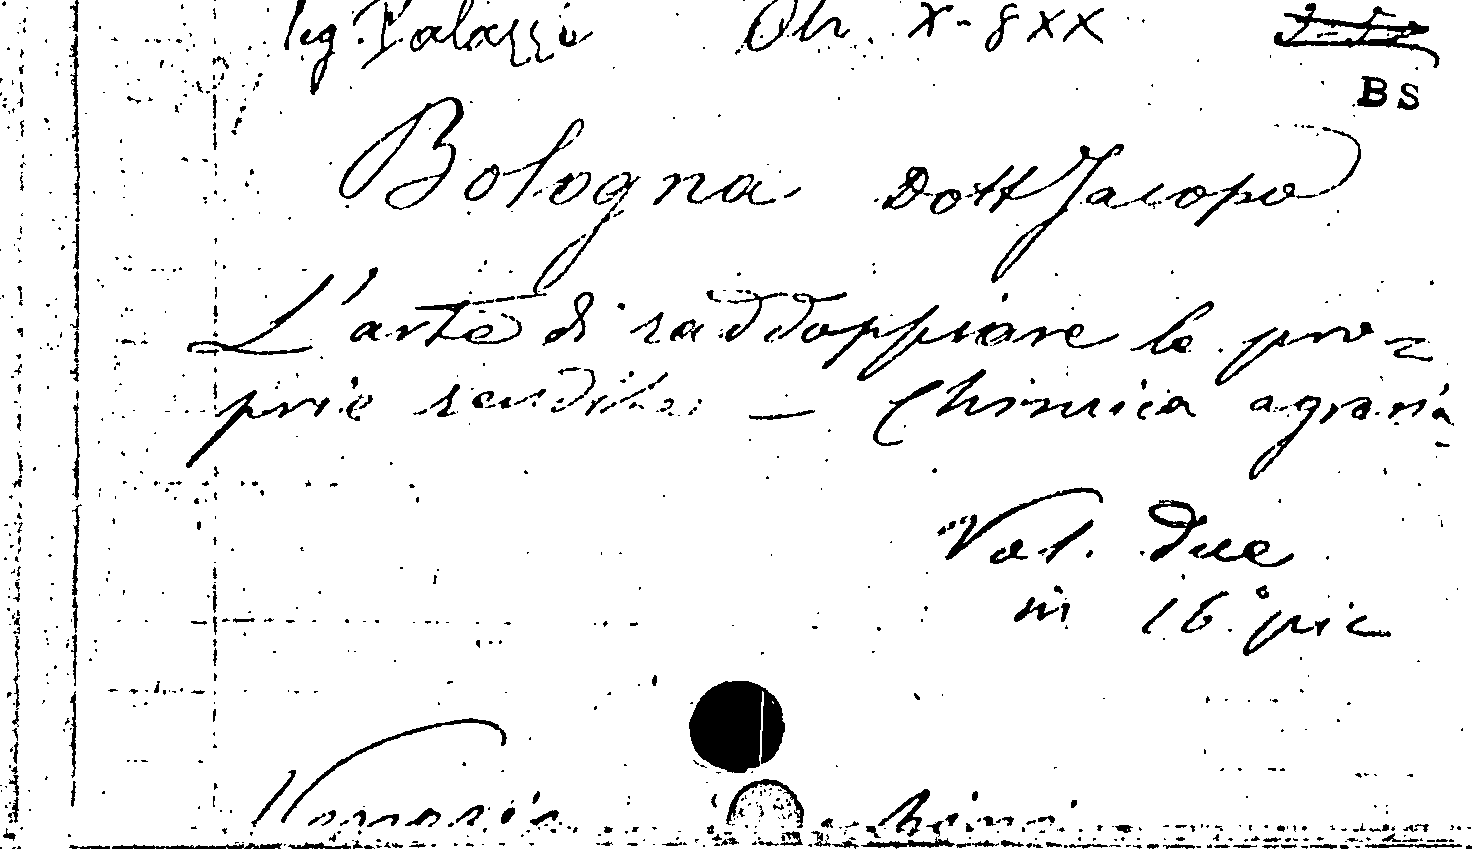 leg. Palazzi Otr. X-8XX
BS
Bologna Dott Jacopo
L'arte di raddoppiare le pro=
prie rendite — Chimica agraria
Vol. due
in 16° pic
Venezia